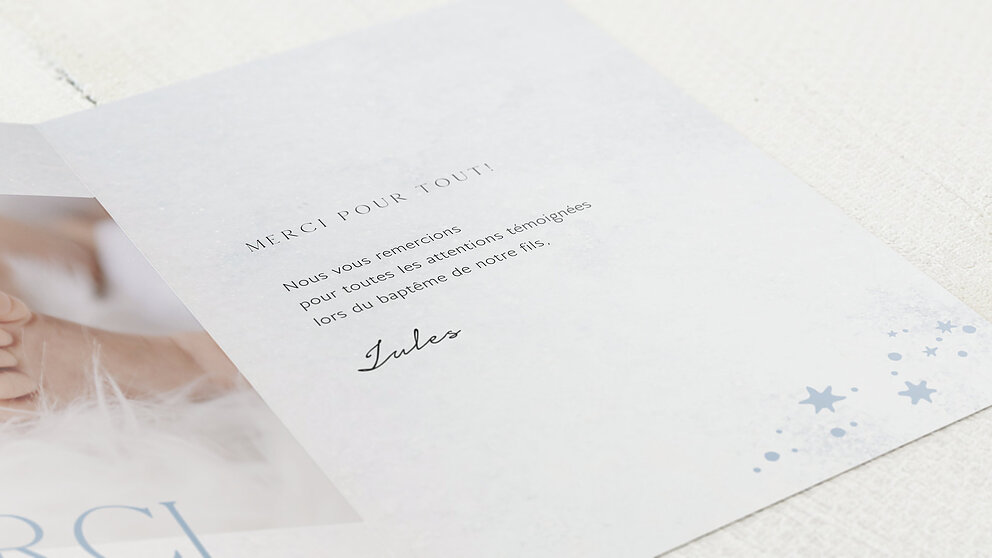 MERCI POUR TOUT!
Nous vous remercions
pour toutes les attentions témoignées
lors du baptême de notre fils.
Jules
RCI